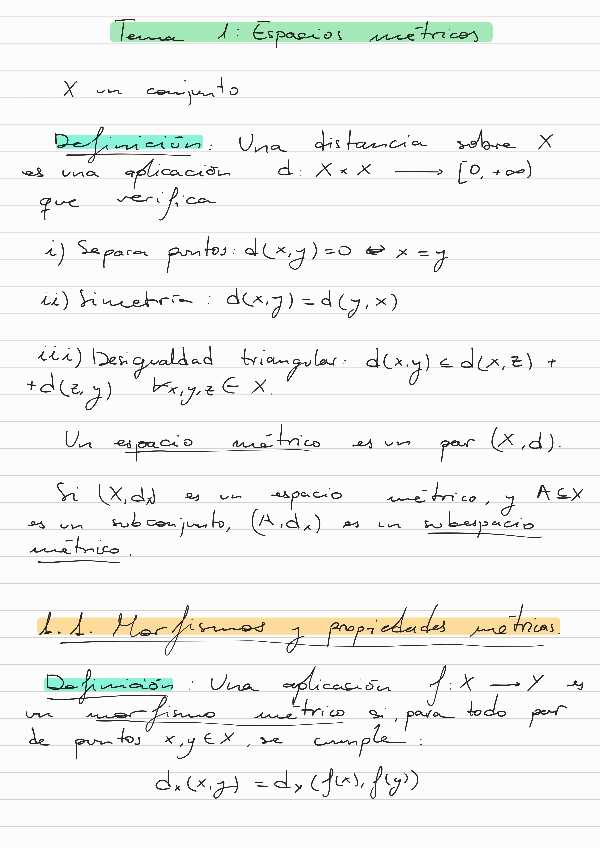 Tema 1: Espacios métricos
X un conjunto
Definición: Una distancia sobre X
es una aplicación d: X × X → [0, +∞)
que verifica
i) Separa puntos: d(x,y)=0 ⇔ x = y
ii) Simetría: d(x,y) = d(y,x)
iii) Desigualdad triangular: d(x,y) ≤ d(x,z) +
+d(z,y) ∀x,y,z ∈ X.
Un espacio métrico es un par (X,d).
Si (X,dₓ) es un espacio métrico, y A⊆X
es un subconjunto, (A,dₓ) es un subespacio
métrico.
1.1. Morfismos y propiedades métricas.
Definición: Una aplicación f: X → Y es
un morfismo métrico si, para todo par
de puntos x,y ∈ X, se cumple:
dₓ(x,y) = dᵧ(f(x), f(y))